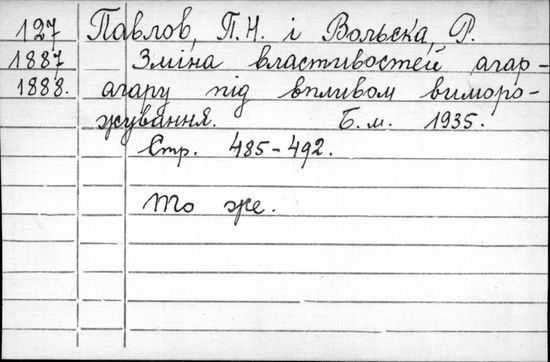 127 Павлов, П.Н. і Вольска, Р.
1887 Зміна властивостей агар-
1888. агару під впливом виморо-
жування. Б.м. 1935.
Стр. 485-492.
То же.